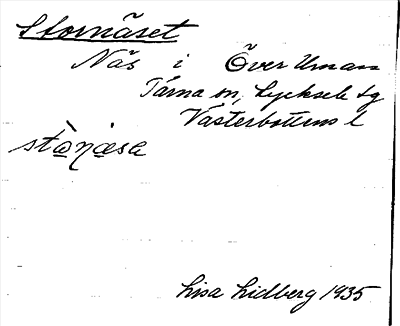 Stornäset
Näs i Över Uman
Tärna sn, Lycksele tg
Västerbottens l
Lisa Lidberg 1935